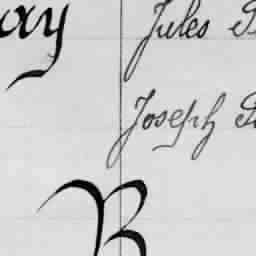 ay Jules
Joseph
B